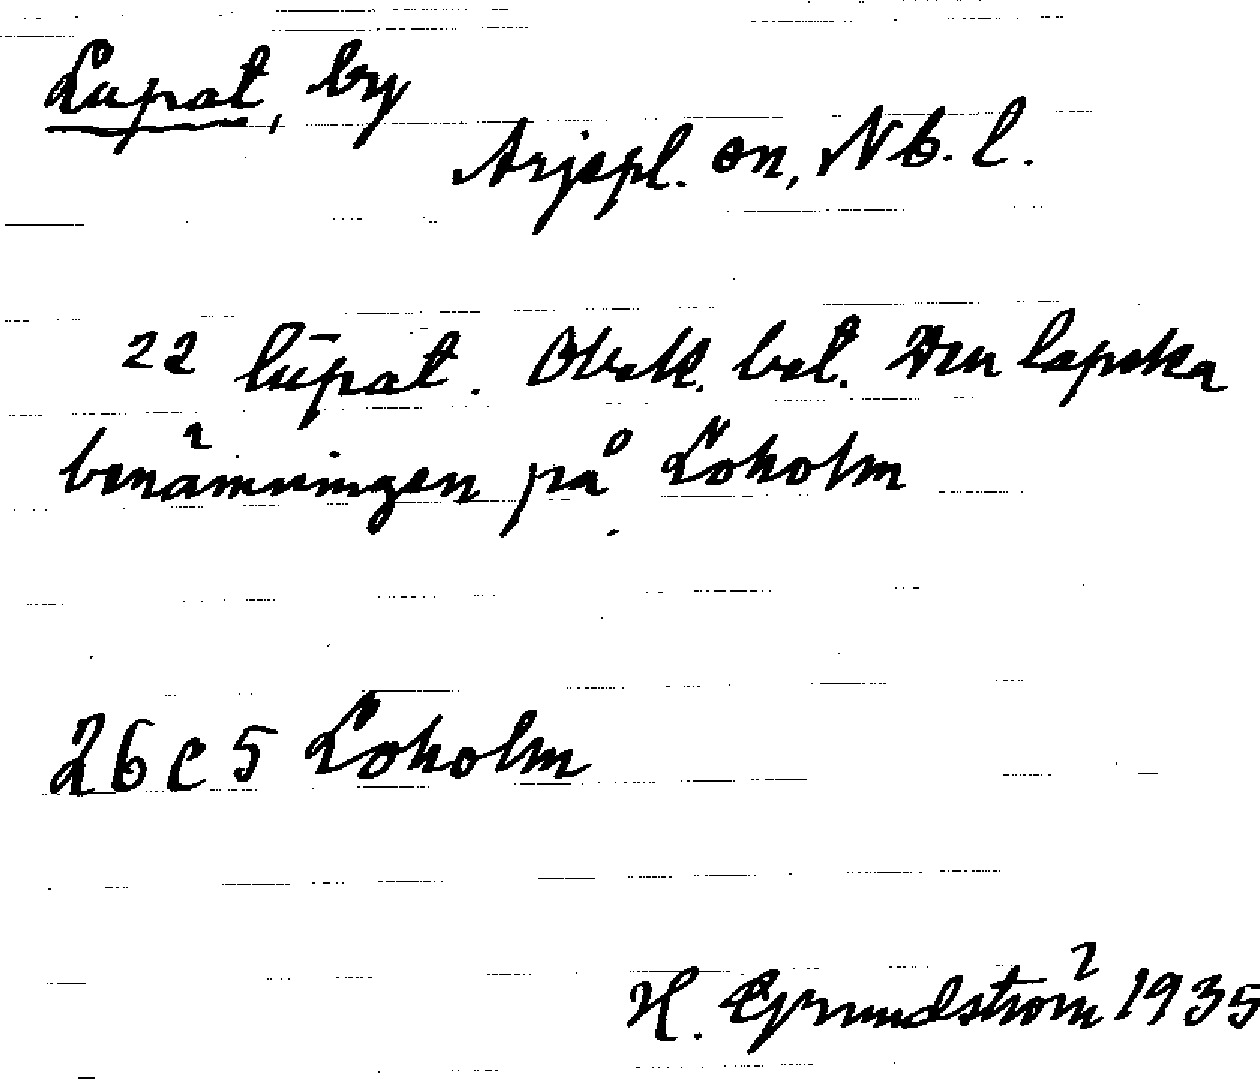 Lupat, by
Arjepl. sn, Nb. l.
22 lūpat. Obek. bet. Den lapska
benämningen på Löholm
26 c 5 Löholm
H. Grundström 1935